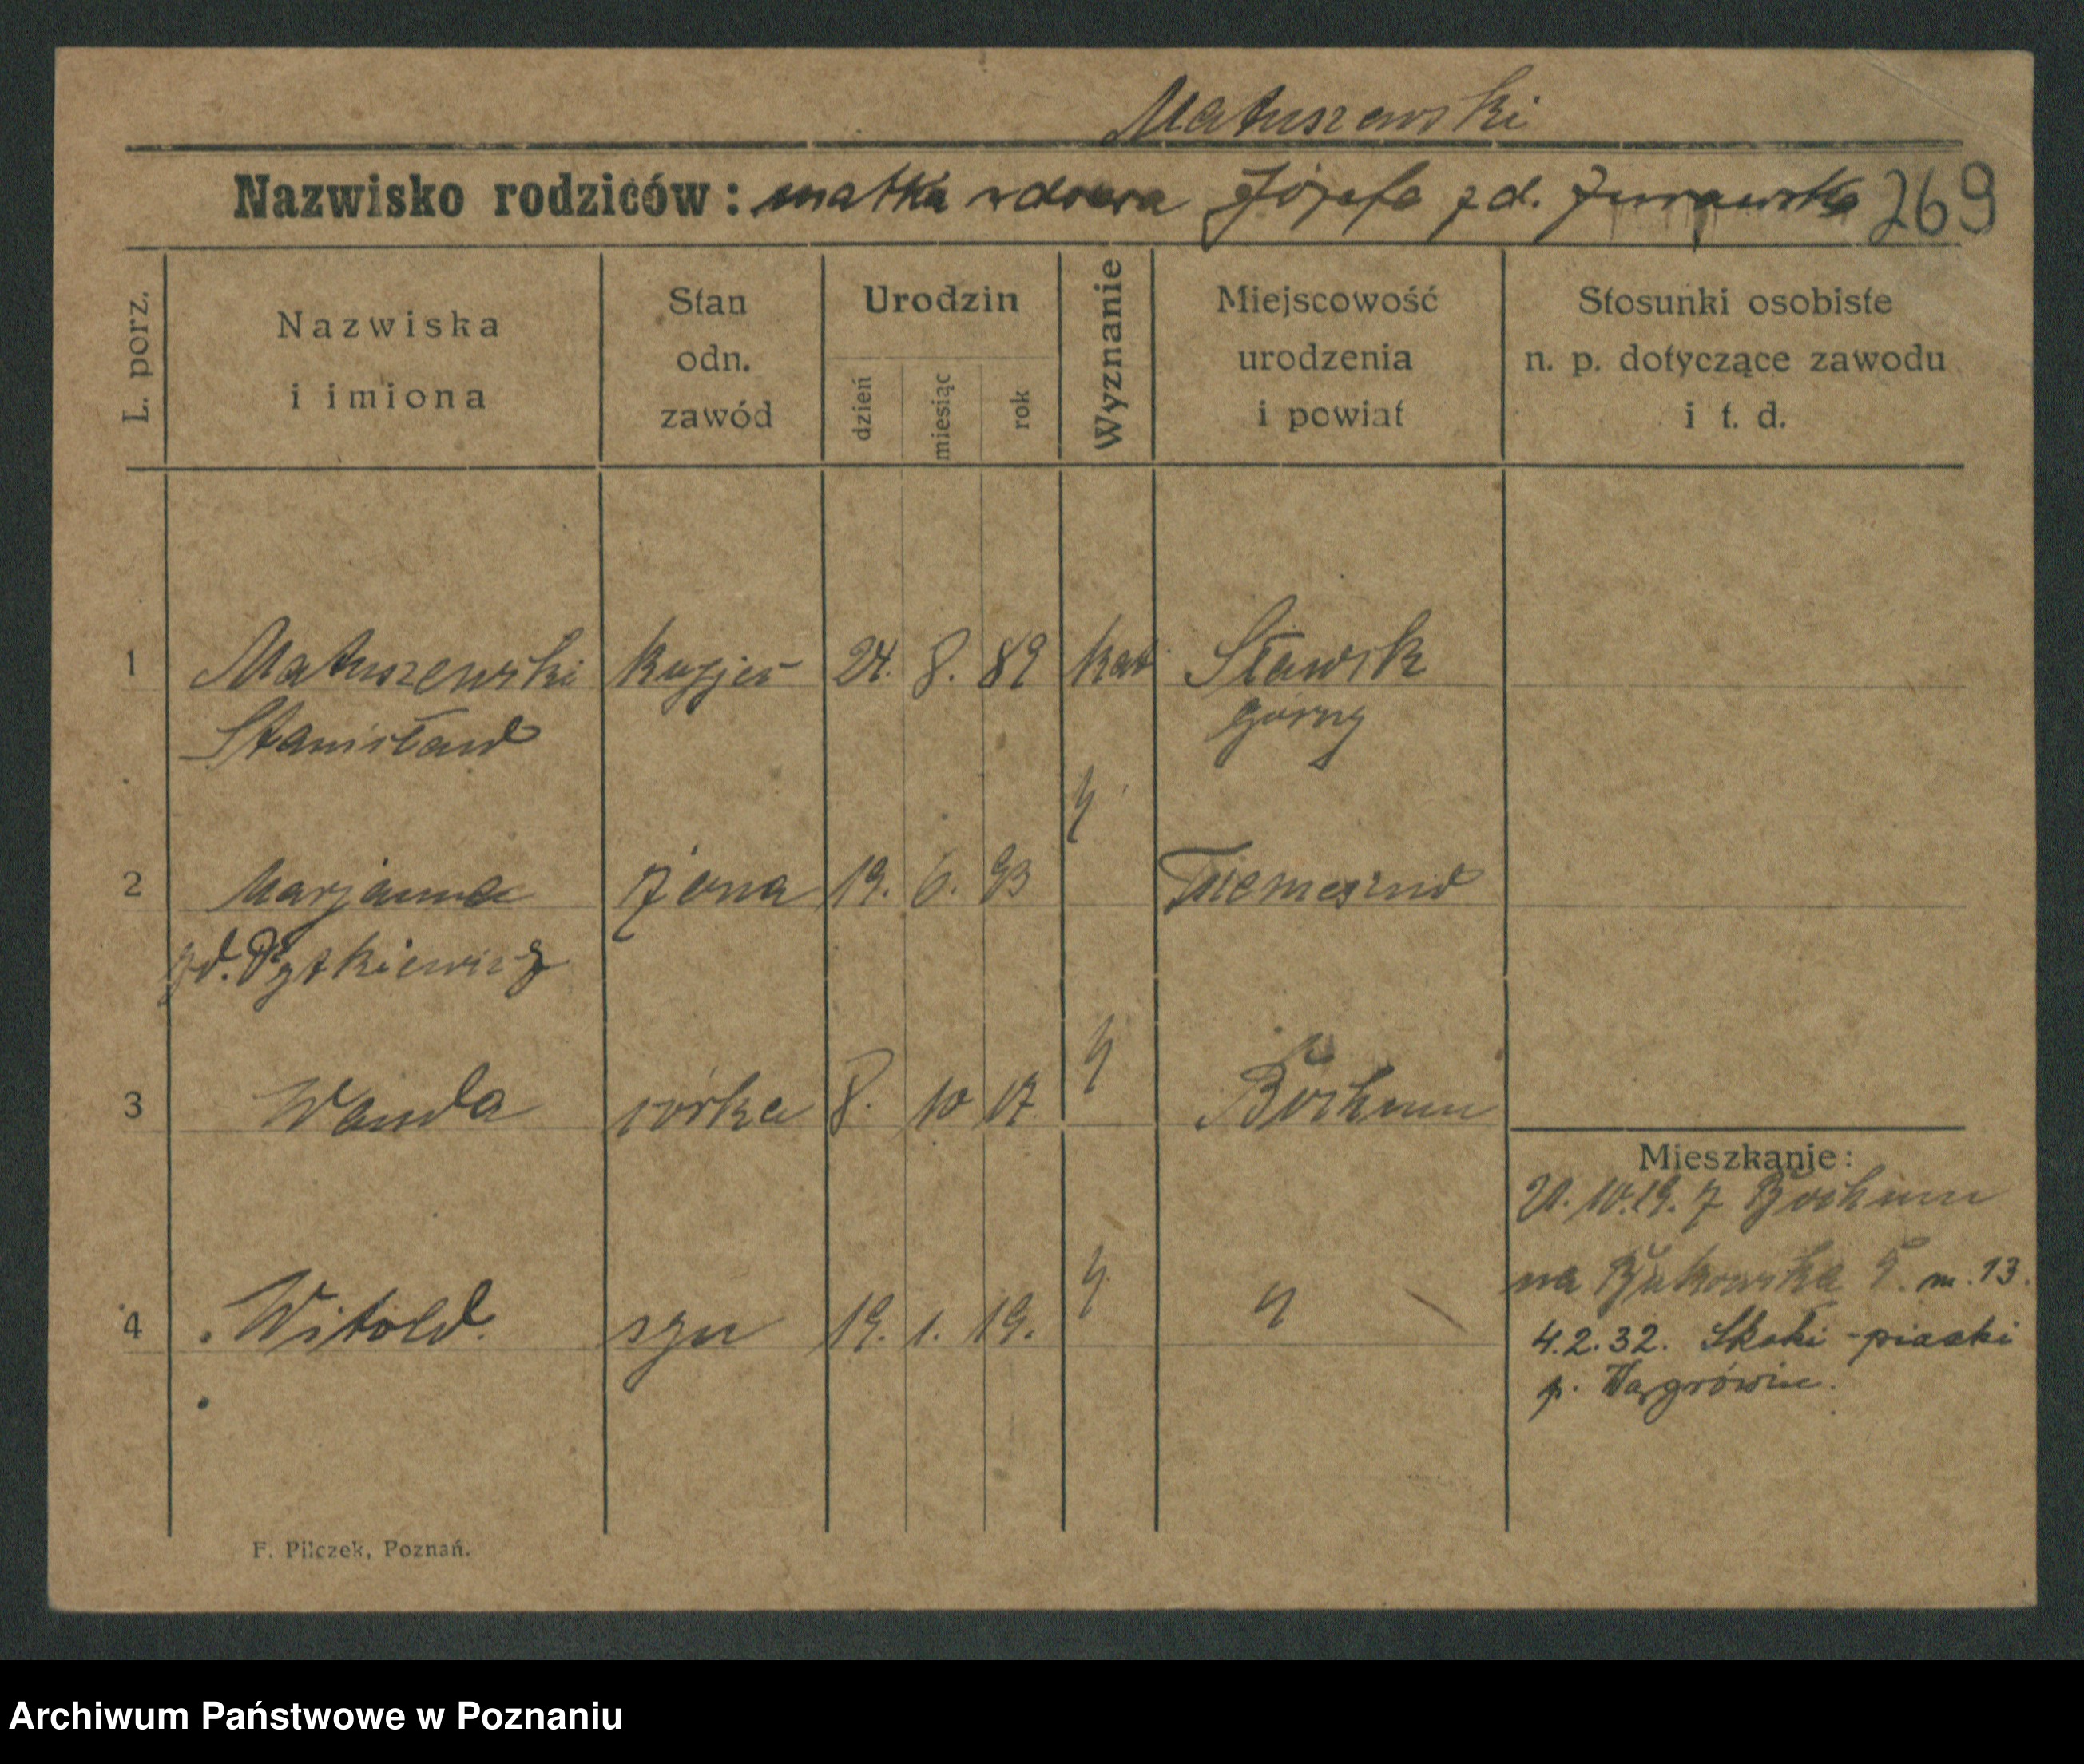 Matuszewski
Nazwisko rodziców: matka wdowa Józefa zd. Żurawska 269
L. porz.
Nazwiska
i imiona
Stan
odn.
zawód
Urodzin
dzień
miesiąc
rok
Wyznanie
Miejscowość
urodzenia
i powiat
Stosunki osobiste
n. p. dotyczące zawodu
i t. d.
1 Matuszewski kupiec 24. 8. 89 kat Sławsk
Stanisław górny
2 Marjanna żona 19. 6. 93 Trzemeszno
zd.
3 Wanda córka 8. 10 17 Bochum
Mieszkanie:
20. 10. 19. z Bochum
na Bukowska 5. m. 13.
4 Witold. syn 19. 1. 19.
4.2.32. Skoki-piaski
p. Wągrówiec.
F. Pilczek, Poznań.
Archiwum Państwowe w Poznaniu